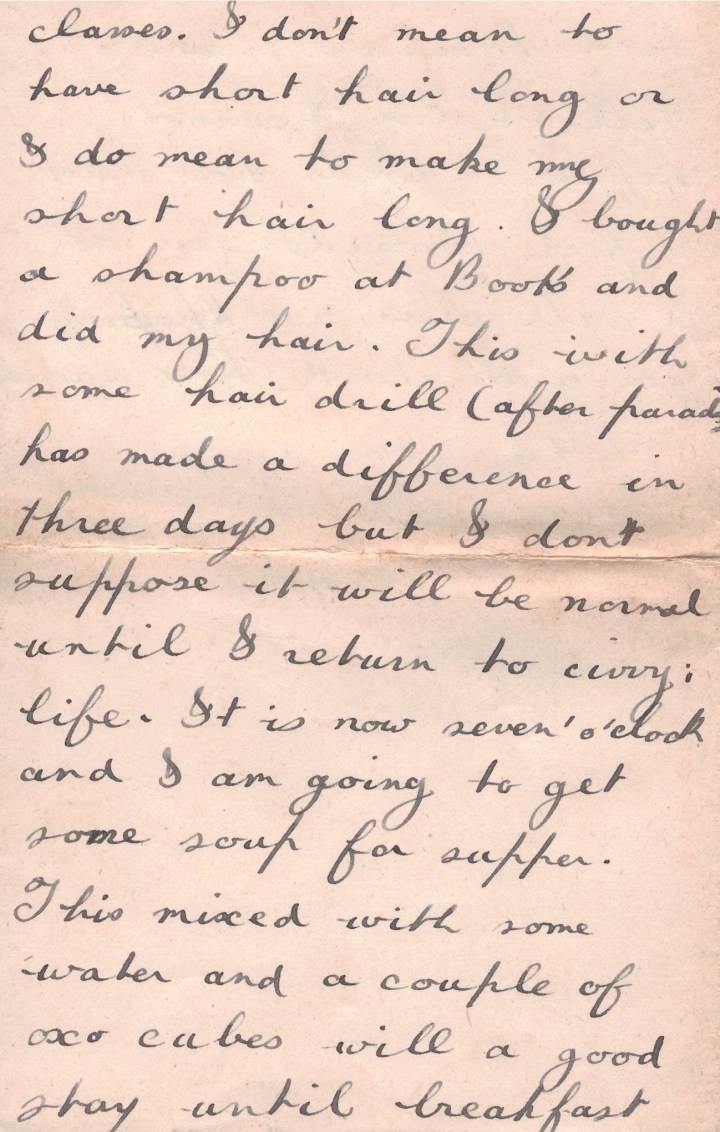 classes. I don't mean to
have short hair long or
I do mean to make my
short hair long. I bought
a shampoo at Boots and
did my hair. This with
some hair drill (after parade
has made a difference in
three days but I dont
suppose it will be normal
until I return to civvy;
life. It is now seven' o'clock
and I am going to get
some soup for supper.
This mixed with some
water and a couple of
oxo cubes will a good
stay until breakfast